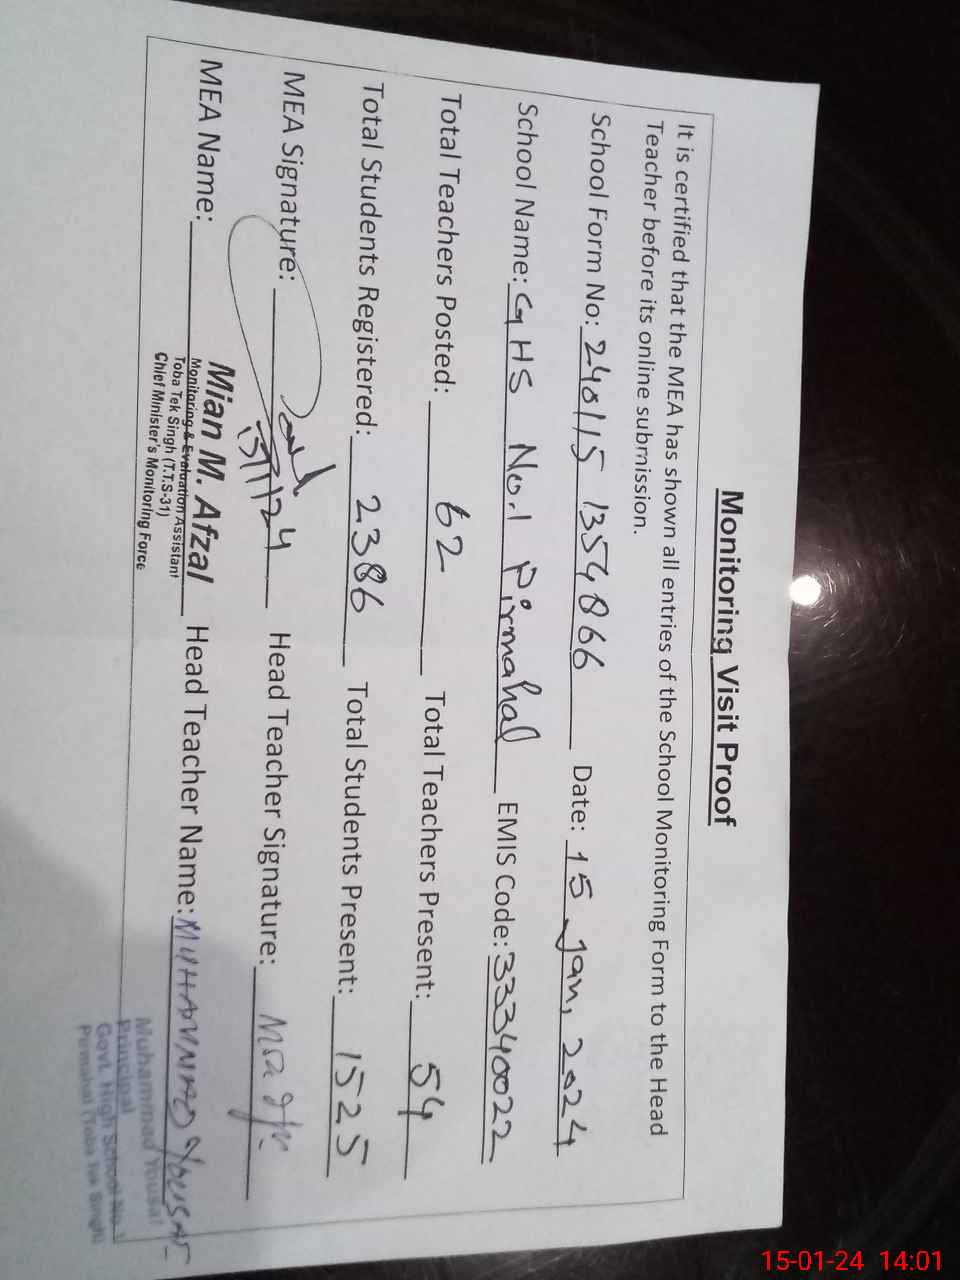 Monitoring Visit Proof
It is certified that the MEA has shown all entries of the School Monitoring Form to the Head
Teacher before its online submission.
School Form No: 240115 1354066 Date: 15 Jan, 2024
School Name: GHS No.1 Pirmahal EMIS Code: 33340022
Total Teachers Posted: 62 Total Teachers Present: 54
Total Students Registered: 2386 Total Students Present: 1525
MEA Signature: 15/1/24 Head Teacher Signature:
MEA Name: Mian M. Afzal Head Teacher Name: MUHAMMAD YOUSAF
Monitoring & Evaluation Assistant
Toba Tek Singh (T.T.S-31)
Chief Minister's Monitoring Force
Muhammad Yousaf
Principal
Govt. High School No. 1
Pirmahal (Toba Tek Singh)
15-01-24 14:01